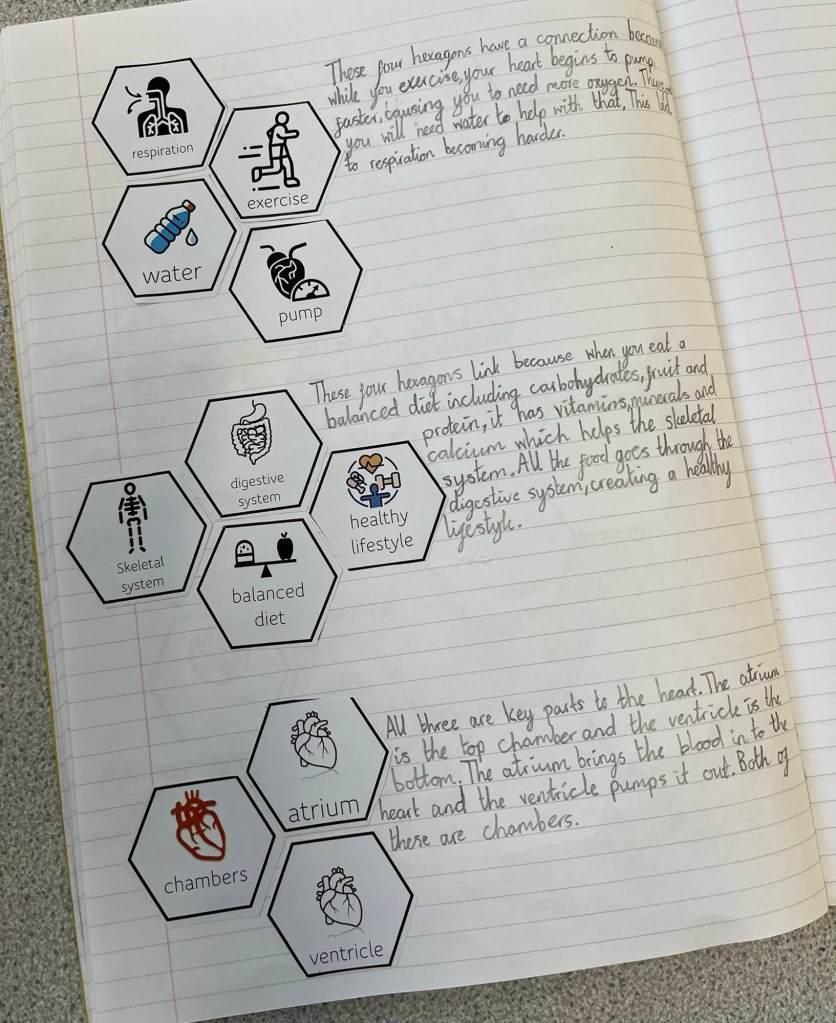 respiration
exercise
water
pump
These four hexagons have a connection because
while you exercise, your heart begins to pump
faster, causing you to need more oxygen.
you will need water to help with that, This led
to respiration becoming harder.
digestive
system
Skeletal
system
healthy
lifestyle
balanced
diet
These four hexagons link because when you eat a
balanced diet including carbohydrates, fruit and
protein, it has vitamins, minerals and
calcium which helps the skeletal
system. All the food goes through the
digestive system, creating a healthy
lifestyle.
atrium
chambers
ventricle
All three are key parts to the heart. The atrium
is the top chamber and the ventricle is the
bottom. The atrium brings the blood in to the
heart and the ventricle pumps it out. Both of
these are chambers.